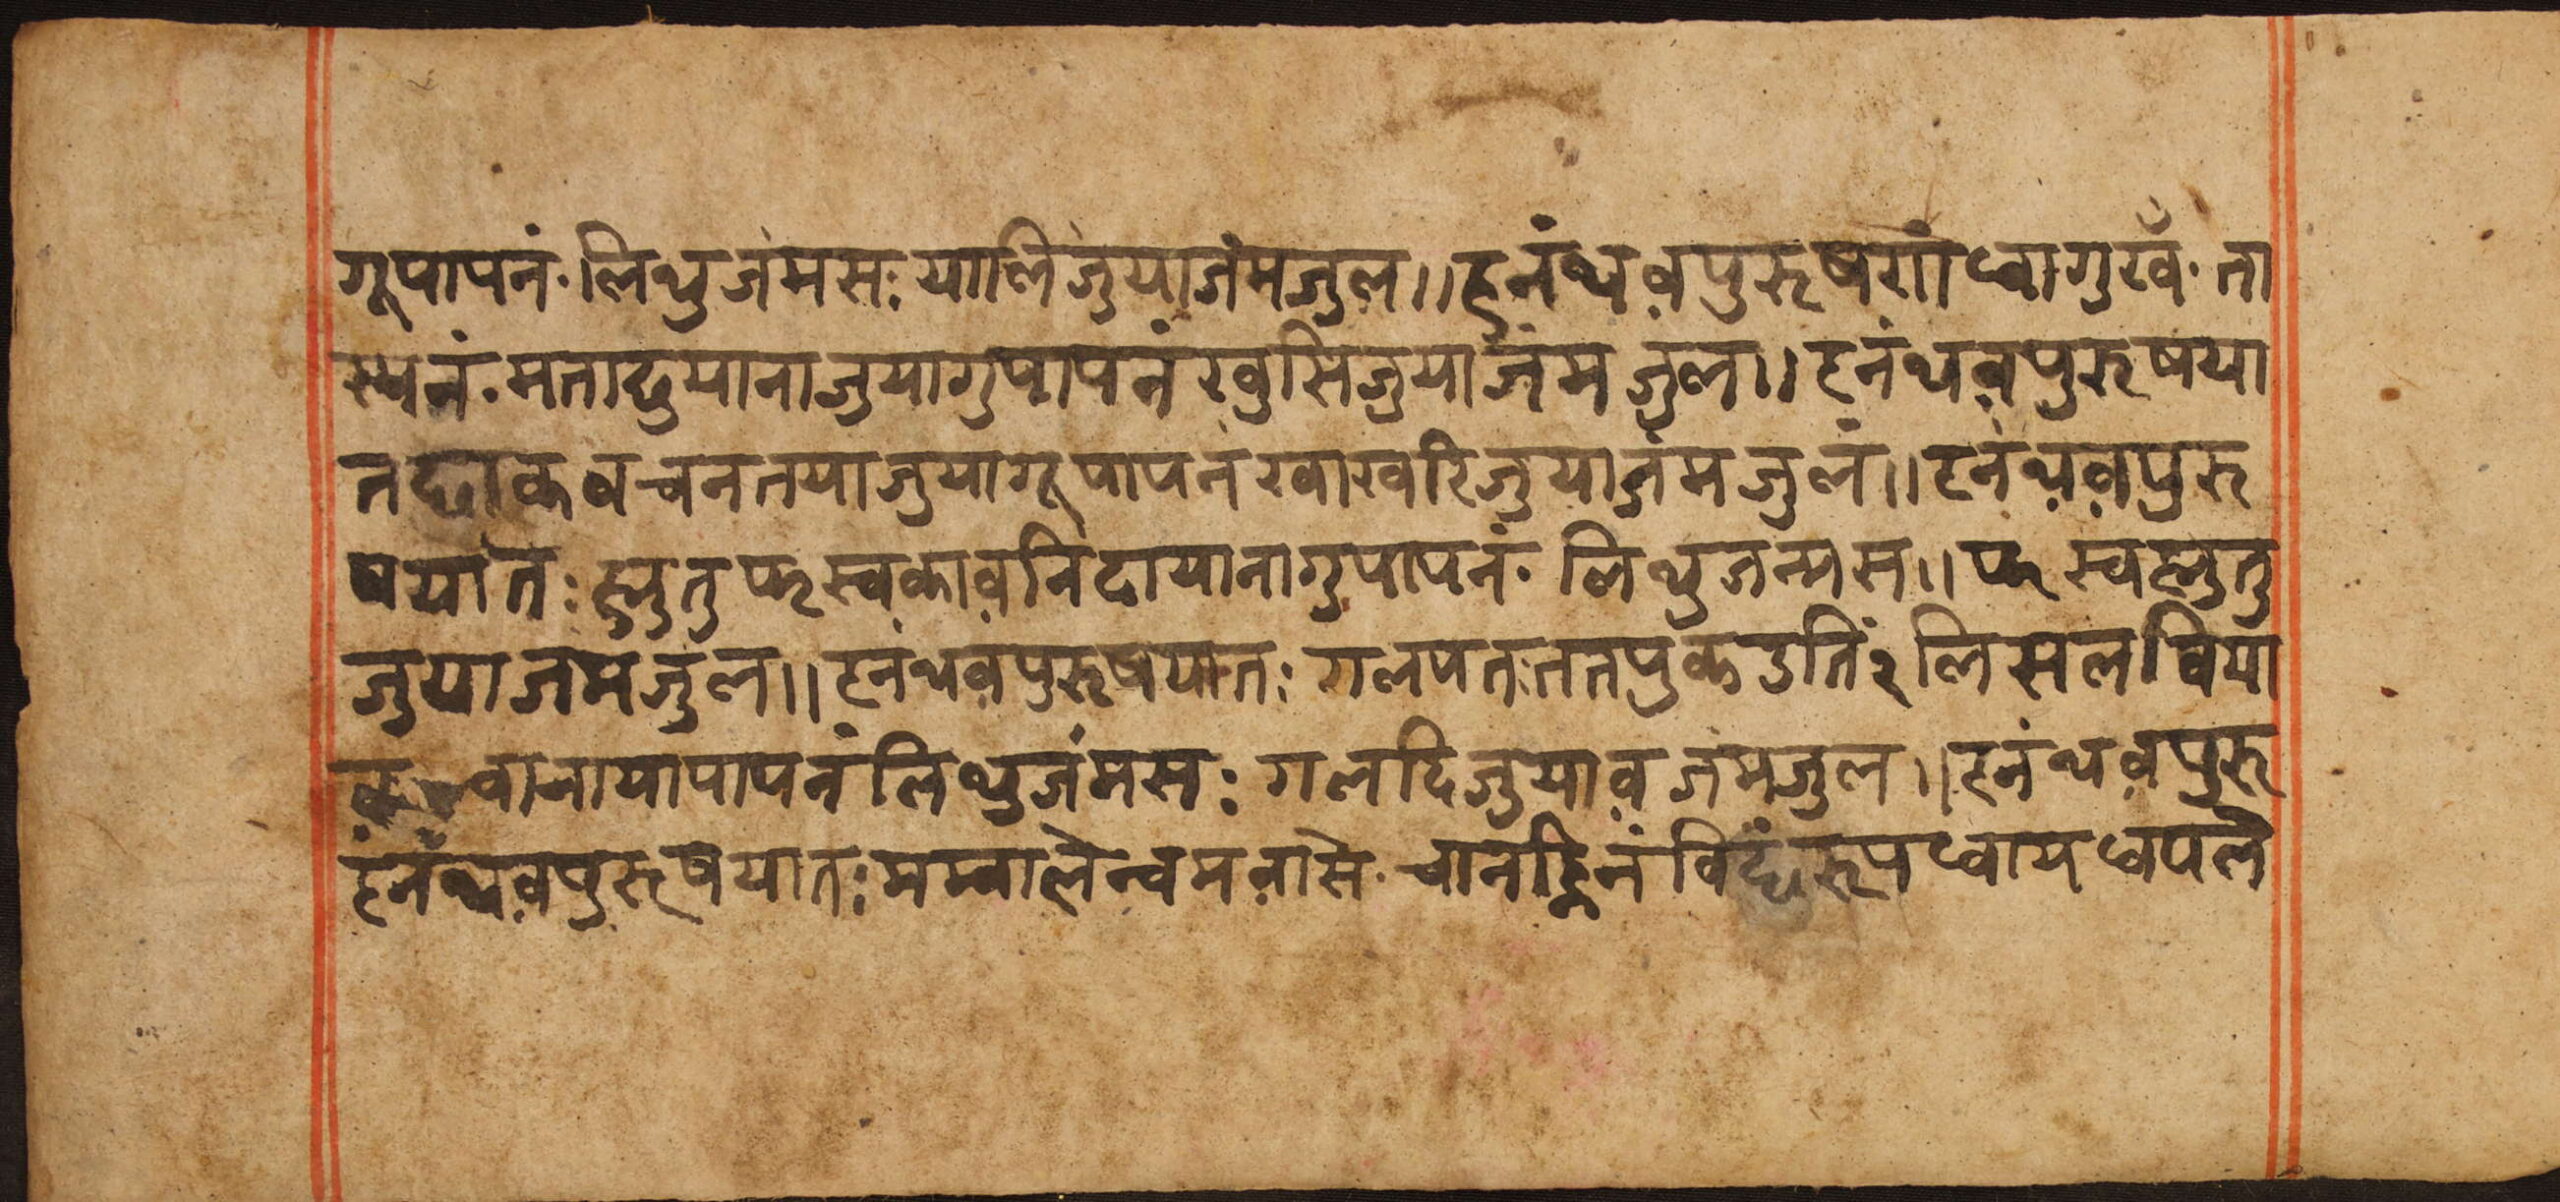 गूपापनं· लिथुजंमसः यालिजुयाजंमजुल॥ हनंथ्वव़पुरूषगां ध्वागुखँ· ता
स्यनं· मताछुयानाजुयागुपापनं खुसिजुयाजंम जुल॥ हनंथव़पुरुषया
नह्माकवचनतयाजुयागूपापनं खाखरिजुयाजंम जुलं॥ हनंथव़पुरु
षयातः ह्मुतुप्फस्वकाव़निदायानागुपापनं· लिथुजन्मस॥ प्फस्वह्मुतु
जुयाजंमजुल॥ हनंथव़पुरूषयातः गलपतततपुकउतिं२लिसलविया
वानायापापनं लिथुजंमसः गलदिजुयाव़जंमजुल॥ हनंथव़पुरू
हनंथ्वव़पुरूषयातः मम्वालेन्वमव़ासे· चानह्निनं विह्मंरूपध्वायध्वपले